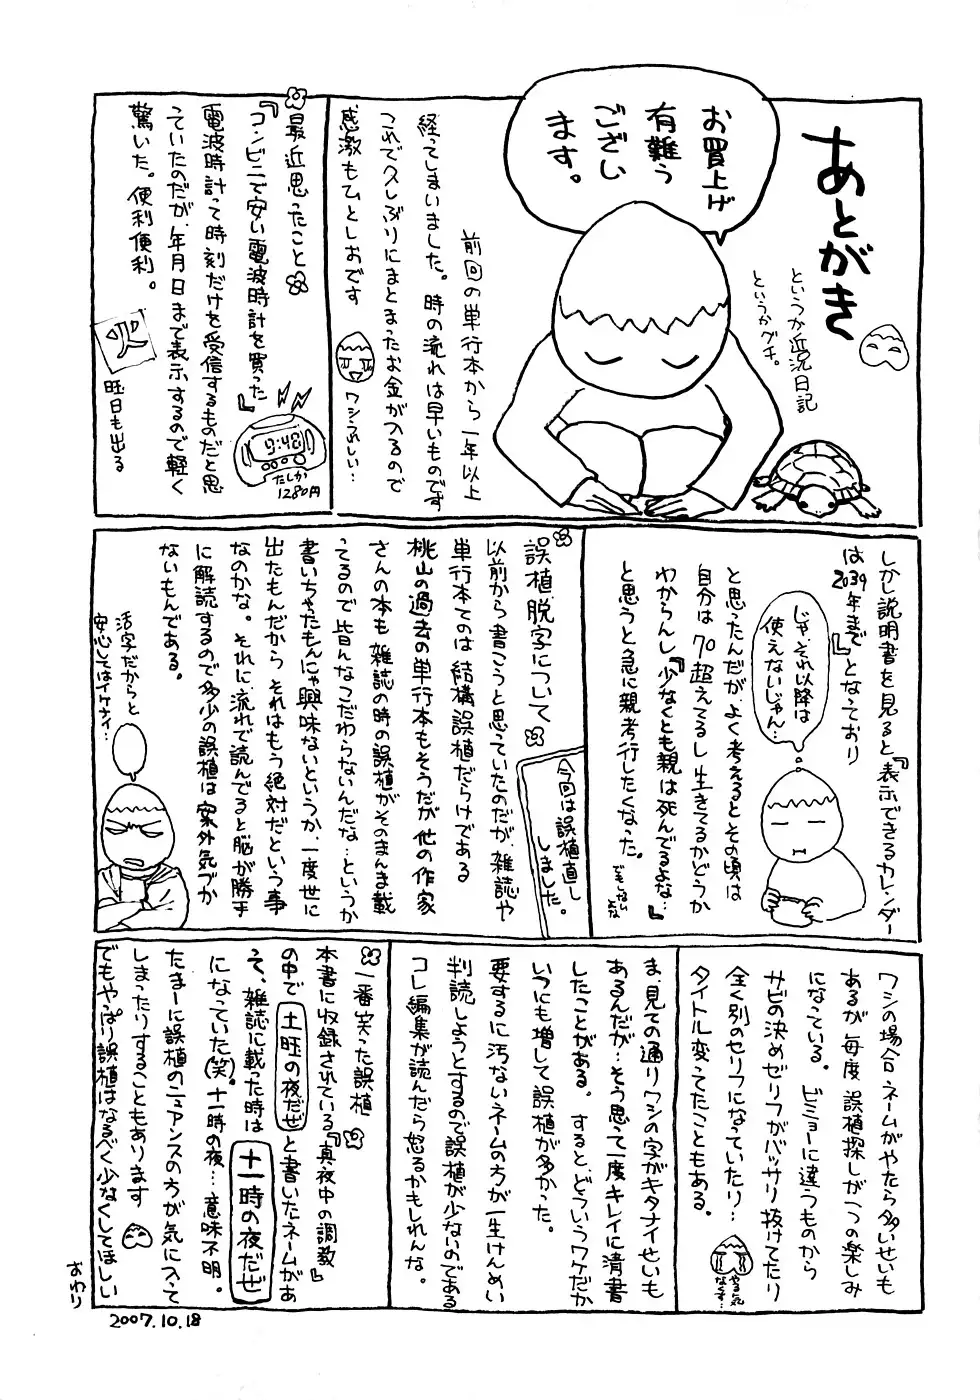 あとがき
というか近況日記
というかグチ。
お買上げ
有難う
ござい
ます。
前回の単行本から一年以上
経ってしまいました。時の流れは早いものです
これで久しぶりにまとまったお金が入るので
感激もひとしおです
ワシうれしい…
最近思ったこと
『コンビニで安い電波時計を買った』
電波時計って時刻だけを受信するものだと思
っていたのだが、年月日まで表示するので軽く
驚いた。便利便利。
9:48
たしか
1280円
火
曜日も出る
しかし説明書を見ると『表示できるカレンダー
は2039年まで』となっており
じゃ、それ以降は
使えないじゃん…
と思ったんだがよく考えるとその頃は
自分は70超えてるし生きてるかどうか
わからんし『少なくとも親は死んでるよな…』
と思うと急に親孝行したくなった。
誤植脱字について
今回は誤植直し
しました。
以前から書こうと思っていたのだが、雑誌や
単行本てのは結構誤植だらけである
桃山の過去の単行本もそうだが他の作家
さんの本も雑誌の時の誤植がそのまんま載
ってるので皆んなこだわらないんだな…というか
書いちゃたもんにゃ興味ないというか、一度世に
出たもんだからそれはもう絶対だという事
なのかな。それに流れで読んでると脳が勝手
に解読するので多少の誤植は案外気づか
ないもんである。
活字だからと
安心してはイケナイ…
ワシの場合ネームがやたら多いせいも
あるが毎度誤植探しが一つの楽しみ
になっている。ビミョーに違うものから
サビの決めゼリフがバッサリ抜けてたり
全く別のセリフになっていたり…
タイトル変ってたこともある。
やる気
なくす…
ま、見ての通りワシの字がキタナイせいも
あるんだが…そう思って一度キレイに清書
したことがある。すると、どういうワケか
いつにも増して誤植が多かった。
要するに汚ないネームの方が一生けんめい
判読しようとするので誤植が少ないのである
コレ編集が読んだら怒るかもしれんな。
一番笑った誤植
本書に収録されている『真夜中の調教』
の中で 土曜の夜だぜ と書いたネームがあ
って、雑誌に載った時は 十一時の夜だぜ
になっていた(笑)。十一時の夜…意味不明。
たまーに誤植のニュアンスの方が気に入って
しまったりすることもあります
でもやっぱり誤植はなるべく少なくしてほしい
おわり
2007.10.18